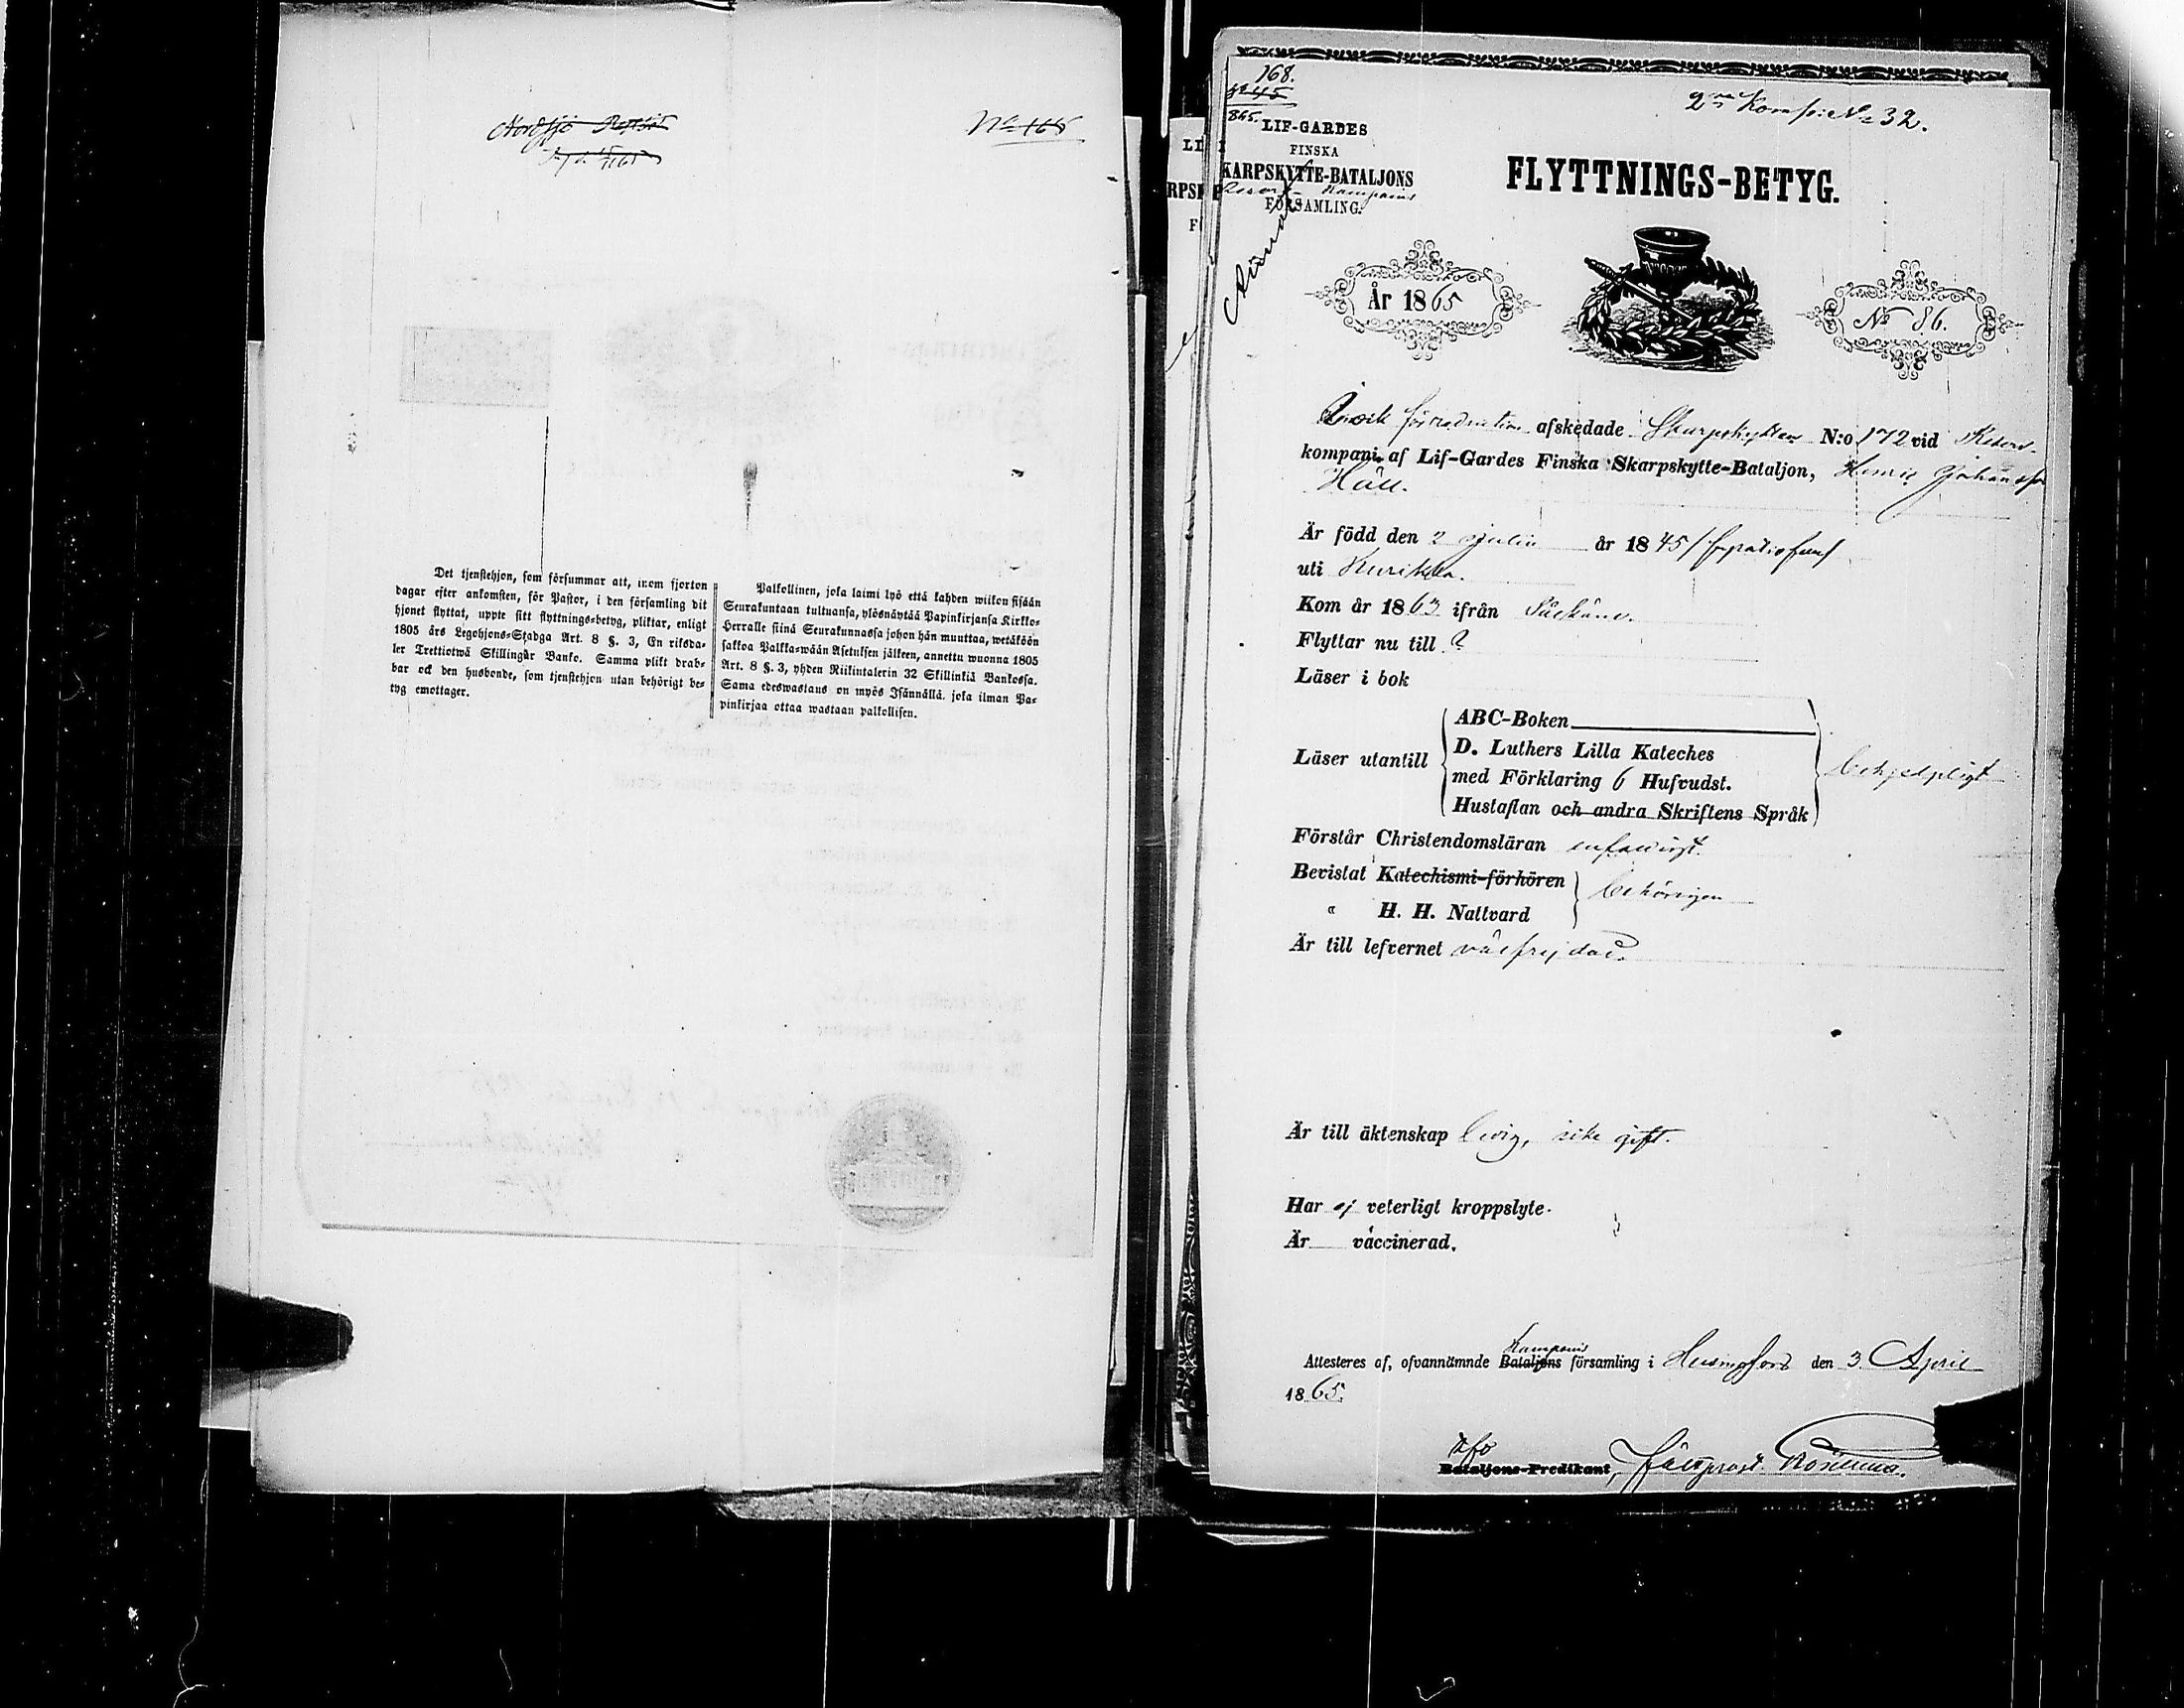 Nordsjö
No 165
Det tjenstehjon, som försummar att, inom fjorton
dagar efter ankomsten, för Pastor, i den församling dit
hjonet flyttat, uppte sitt flyttnings-betyg, pliktar, enligt
1805 års Legohjons-Stadga Art. 8 §. 3, En riksda-
ler Trettiotwå Skillingar Banko. Samma plikt drab-
bar ock den husbonde, som tjenstehjon utan behörigt be-
tyg emottager.
Palkollinen, joka laimi lyö että kahden wiikon sisään
Seurakuntaan tultuansa, ylösnäytää Papinkirjansa Kirkko-
Herralle siinä Seurakunnassa johon hän muuttaa, wetäköön
sakkoa Palkka-wään Asetuksen jälkeen, annettu wuonna 1805
Art. 8 §. 3, yhden Riikintalerin 32 Skillinkiä Bankossa.
Sama edeswastaus on myös Isännällä, joka ilman Pa-
pinkirjaa ottaa wastaan palkollisen.
168.
No 45
865.
2ra Komp: No 32.
LIF-GARDES
FINSKA
KARPSKYTTE-BATALJONS
Reserv-Kompanis
FÖRSAMLING.
FLYTTNINGS-BETYG.
År 1865
No 86.
afskedade Skarpskytten N:o 172 vid Reserv-
kompani af Lif-Gardes Finska Skarpskytte-Bataljon, Henric Johansson
Häll.
Är född den 2 Julii år 1845/
uti Kurikka.
Kom år 1863 ifrån
Flyttar nu till ?
Läser i bok
Läser utantill
ABC-Boken
D. Luthers Lilla Kateches
med Förklaring 6 Hufvudst.
Hustaflan och andra Skriftens Språk
behjelpligt
Förstår Christendomsläran enfaldigt.
Bevistat Katechismi-förhören
" H. H. Nattvard
behörigen
Är till lefvernet välfrejdad.
Är till äktenskap ledig, icke gift.
Har ej veterligt kroppslyte.
Är vaccinerad.
Kompanis
Attesteres af, ofvannämnde Bataljons församling i Helsingfors den 3 April
1865.
Bataljons-Predikant, Fältprost